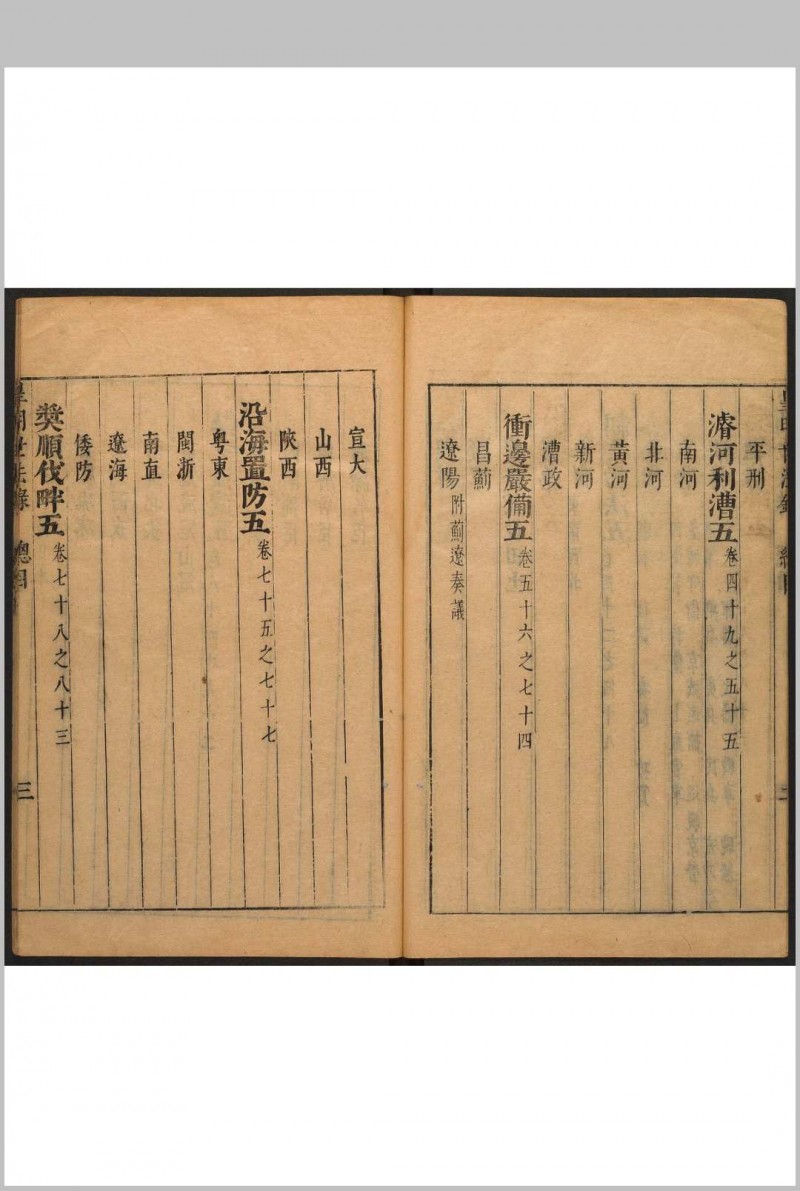 平刑
濬河利漕五 卷四十九之五十五
南河
北河
黃河
新河
漕政
衝邊嚴備五 卷五十六之七十四
昌薊
遼陽 附薊遼奏議
宣大
山西
陝西
沿海置防五 卷七十五之七十七
粤東
閩浙
南直
遼海
倭防
奬順伐畔五 卷七十八之八十三
皇明世法錄 總目 三